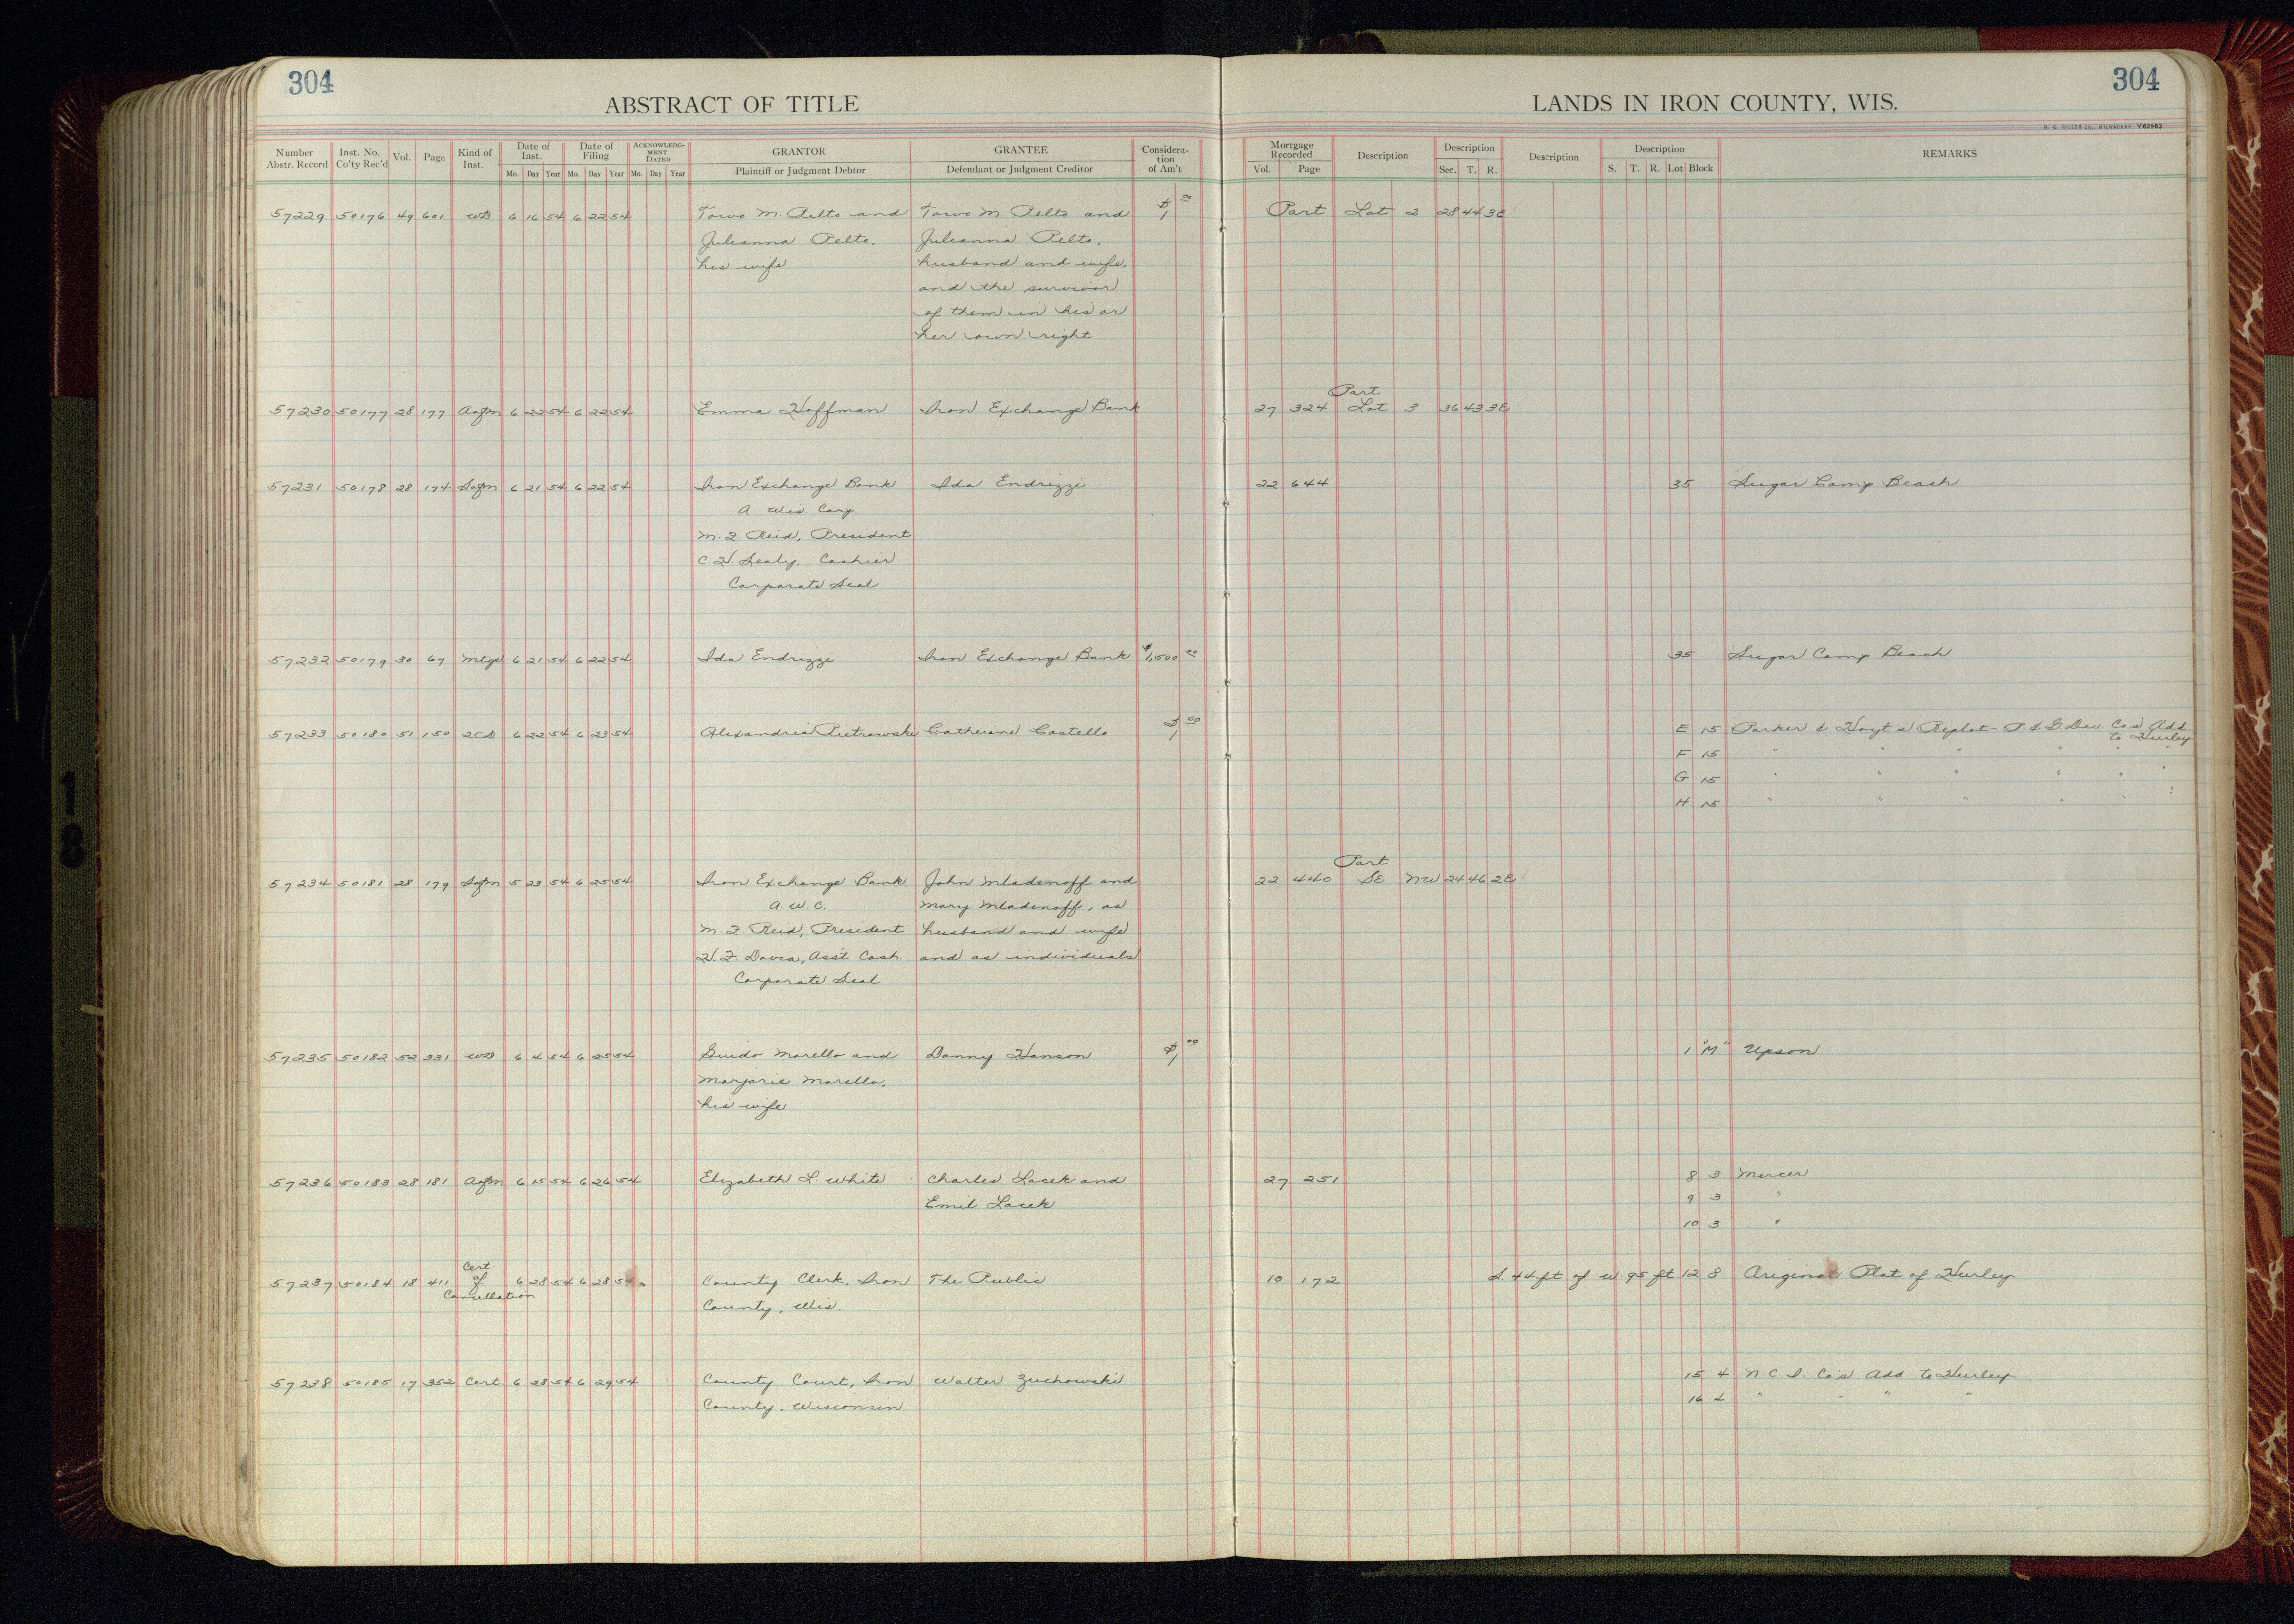 304
304
ABSTRACT OF TITLE
LANDS IN IRON COUNTY, WIS.
H. C. MILLER CO., MILWAUKEE V62963
Number Abstr. Record Inst. No. Co'ty Rec'd Vol. Page Kind of Inst. Date of Inst. Mo. Day Year Date of Filing Mo. Day Year ACKNOWLEDGMENT DATED Mo. Day Year GRANTOR Plaintiff or Judgment Debtor GRANTEE Defendant or Judgment Creditor Consideration of Am't
Mortgage Recorded Vol. Page Description Description Sec. T. R. Description Description S. T. R. Lot Block REMARKS
57229 50176 49 601 WD 6 16 54 6 22 54 Toivo M. Pelto and Toivo M. Pelto and $1 00 Part Lot 2 28 44 3E
Julianna Pelto, Julianna Pelto,
his wife husband and wife,
and the survivor
of them in his or
her own right
Part
57230 50177 28 177 Aofm 6 22 54 6 22 54 Emma Hoffman Iron Exchange Bank 27 324 Lot 3 36 43 3E
57231 50178 28 174 Sofm 6 21 54 6 22 54 Iron Exchange Bank Ida Endrizzi 22 644 35 Sugar Camp Beach
A Wis. Corp.
M. F. Reid, President
C. H. Sealy, Cashier
Corporate Seal
57232 50179 30 67 Mtge 6 21 54 6 22 54 Ida Endrizzi Iron Exchange Bank $1,500 00 35 Sugar Camp Beach
57233 50180 51 150 2CD 6 22 54 6 23 54 Alexandria Pietrowski Catherine Costello $1 00 E 15 Parker & Hoyt's Replat - P. & G Dev. Co's Add. to Hurley
F 15 " " " " " "
G 15 " " " " " "
H 15 " " " " " "
Part
57234 50181 28 179 Sofm 5 23 54 6 25 54 Iron Exchange Bank John Mladenoff and 22 440 SE NW 24 46 2E
A. W. C. Mary Mladenoff, as
M. F. Reid, President husband and wife
H. F. Davia, Ass't Cash. and as individuals
Corporate Seal
57235 50182 52 331 WD 6 4 54 6 25 54 Guido Morello and Danny Hanson $1 00 1 "M" Upson
Marjorie Morello,
his wife
57236 50183 28 181 Aofm 6 15 54 6 26 54 Elizabeth L. White Charles Lacek and 27 251 8 3 Mercer
Emil Lacek 9 3 "
10 3 "
57237 50184 18 411 Cert. of Cancellation 6 28 54 6 28 54 County Clerk, Iron The Public 10 172 S. 44 ft of W. 95 ft 12 8 Original Plat of Hurley
County, Wis.
57238 50185 17 352 Cert. 6 28 54 6 29 54 County Court, Iron Walter Zuchowski 15 4 N. C. I. Co's Add. to Hurley
County, Wisconsin 16 4 " " " "
18